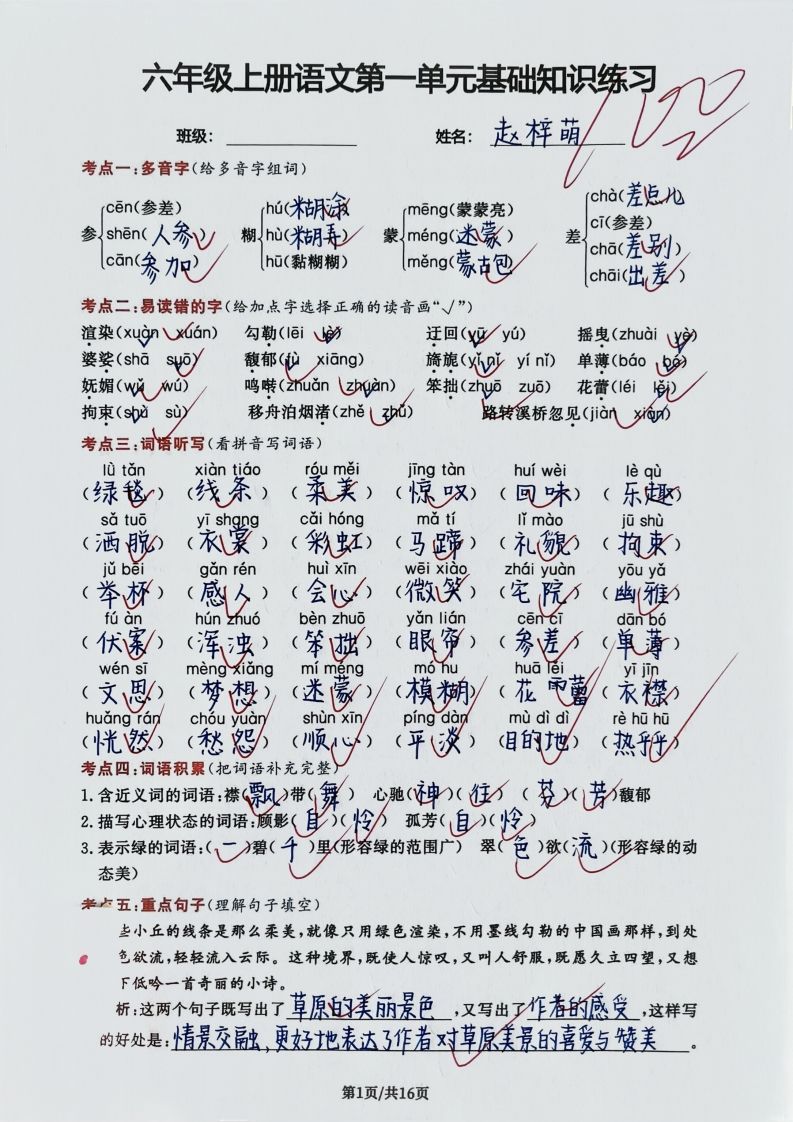 六年级上册语文第一单元基础知识练习
100
班级：____ 姓名：赵梓萌
考点一：多音字（给多音字组词）
参 cēn（参差） shēn（人参） cān（参加）
糊 hú（糊涂） hù（糊弄） hū（黏糊糊）
蒙 mēng（蒙蒙亮） méng（迷蒙） měng（蒙古包）
差 chà（差点儿） cī（参差） chā（差别） chāi（出差）
考点二：易读错的字（给加点字选择正确的读音画“√”）
渲染（xuàn√ xuán） 勾勒（lēi lè√） 迂回（yū√ yú） 摇曳（zhuài yè√）
婆娑（shā suō√） 馥郁（fù√ xiāng） 旖旎（yǐ nǐ√ yí nǐ） 单薄（báo bó√）
妩媚（wǔ√ wú） 鸣啭（zhuǎn zhuàn√） 笨拙（zhuō√ zuō） 花蕾（léi lěi√）
拘束（shù√ sù） 移舟泊烟渚（zhě zhǔ√） 路转溪桥忽见（jiàn xiàn√）
考点三：词语听写（看拼音写词语）
lǜ tǎn xiàn tiáo róu měi jīng tàn huí wèi lè qù
（绿毯） （线条） （柔美） （惊叹） （回味） （乐趣）
sǎ tuō yī shang cǎi hóng mǎ tí lǐ mào jū shù
（洒脱） （衣裳） （彩虹） （马蹄） （礼貌） （拘束）
jǔ bēi gǎn rén huì xīn wēi xiào zhái yuàn yōu yǎ
（举杯） （感人） （会心） （微笑） （宅院） （幽雅）
fú àn hún zhuó bèn zhuō yǎn lián cēn cī dān bó
（伏案） （浑浊） （笨拙） （眼帘） （参差） （单薄）
wén sī mèng xiǎng mí méng mó hu huā lěi yī jīn
（文思） （梦想） （迷蒙） （模糊） （花蕾） （衣襟）
huǎng rán chóu yuàn shùn xīn píng dàn mù dì dì rè hū hū
（恍然） （愁怨） （顺心） （平淡） （目的地） （热乎乎）
考点四：词语积累（把词语补充完整）
1. 含近义词的词语：襟（飘）带（舞） 心驰（神）（往） （芬）（芳）馥郁
2. 描写心理状态的词语：顾影（自）（怜） 孤芳（自）（怜）
3. 表示绿的词语：（一）碧（千）里（形容绿的范围广） 翠（色）欲（流）（形容绿的动
态美）
考点五：重点句子（理解句子填空）
些小丘的线条是那么柔美，就像只用绿色渲染，不用墨线勾勒的中国画那样，到处
色欲流，轻轻流入云际。这种境界，既使人惊叹，又叫人舒服，既愿久立四望，又想
下低吟一首奇丽的小诗。
析：这两个句子既写出了草原的美丽景色，又写出了作者的感受，这样写
的好处是：情景交融，更好地表达了作者对草原美景的喜爱与赞美。
第1页/共16页